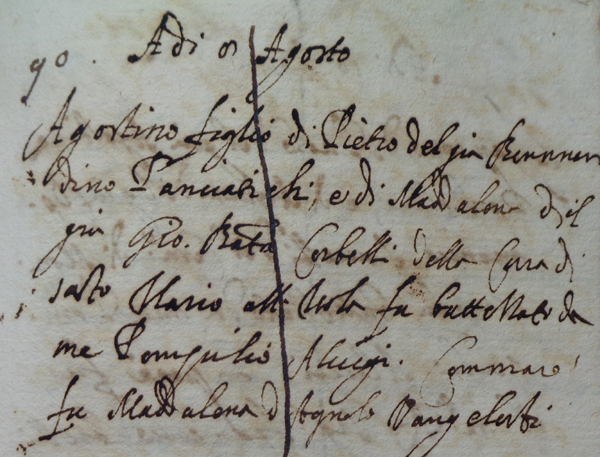 90. Adi 01 Agosto
Agostino figlio di Pietro del qu Bennar
dino Panciatichi, e di Maddalena del
qu Gio. Batta Corbelli della Cura di
santo Ilario all Isola fu battezzato da
me Pompilio Aluigi. Commare
fu Maddalena d Agnolo Vangelisti